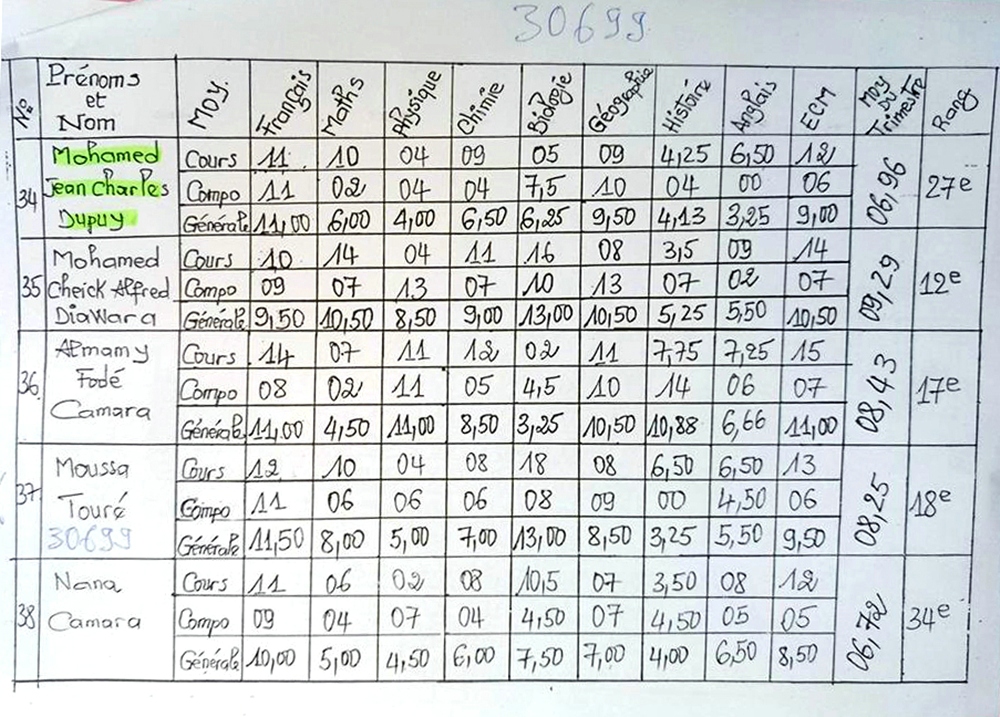 30699
N° Prénoms et Nom Moy. Français Maths Physique Chimie Biologie Géographie Histoire Anglais ECM Moy du Trimestre Rang
34 Mohamed Jean Charles Dupuy 06,96 27e
Cours 11 10 04 09 05 09 4,25 6,50 12
Compo 11 02 04 04 7,5 10 04 00 06
Générale 11,00 6,00 4,00 6,50 6,25 9,50 4,13 3,25 9,00
35 Mohamed Cheick Alfred Diawara 09,29 12e
Cours 10 14 04 11 16 08 3,5 09 14
Compo 09 07 13 07 10 13 07 02 07
Générale 9,50 10,50 8,50 9,00 13,00 10,50 5,25 5,50 10,50
36 Almamy Fodé Camara 08,43 17e
Cours 14 07 11 12 02 11 7,75 7,25 15
Compo 08 02 11 05 4,5 10 14 06 07
Générale 11,00 4,50 11,00 8,50 3,25 10,50 10,88 6,66 11,00
37 Moussa Touré 30699 08,25 18e
Cours 12 10 04 08 18 08 6,50 6,50 13
Compo 11 06 06 06 08 09 00 4,50 06
Générale 11,50 8,00 5,00 7,00 13,00 8,50 3,25 5,50 9,50
38 Nana Camara 06,72 34e
Cours 11 06 02 08 10,5 07 3,50 08 12
Compo 09 04 07 04 4,50 07 4,50 05 05
Générale 10,00 5,00 4,50 6,00 7,50 7,00 4,00 6,50 8,50